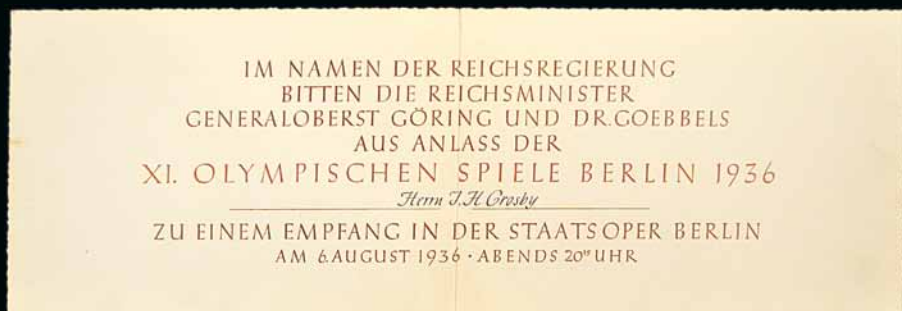 IM NAMEN DER REICHSREGIERUNG
BITTEN DIE REICHSMINISTER
GENERALOBERST GÖRING UND DR. GOEBBELS
AUS ANLASS DER
XI. OLYMPISCHEN SPIELE BERLIN 1936
Herrn J. H. Crosby
ZU EINEM EMPFANG IN DER STAATSOPER BERLIN
AM 6. AUGUST 1936 · ABENDS 20°° UHR